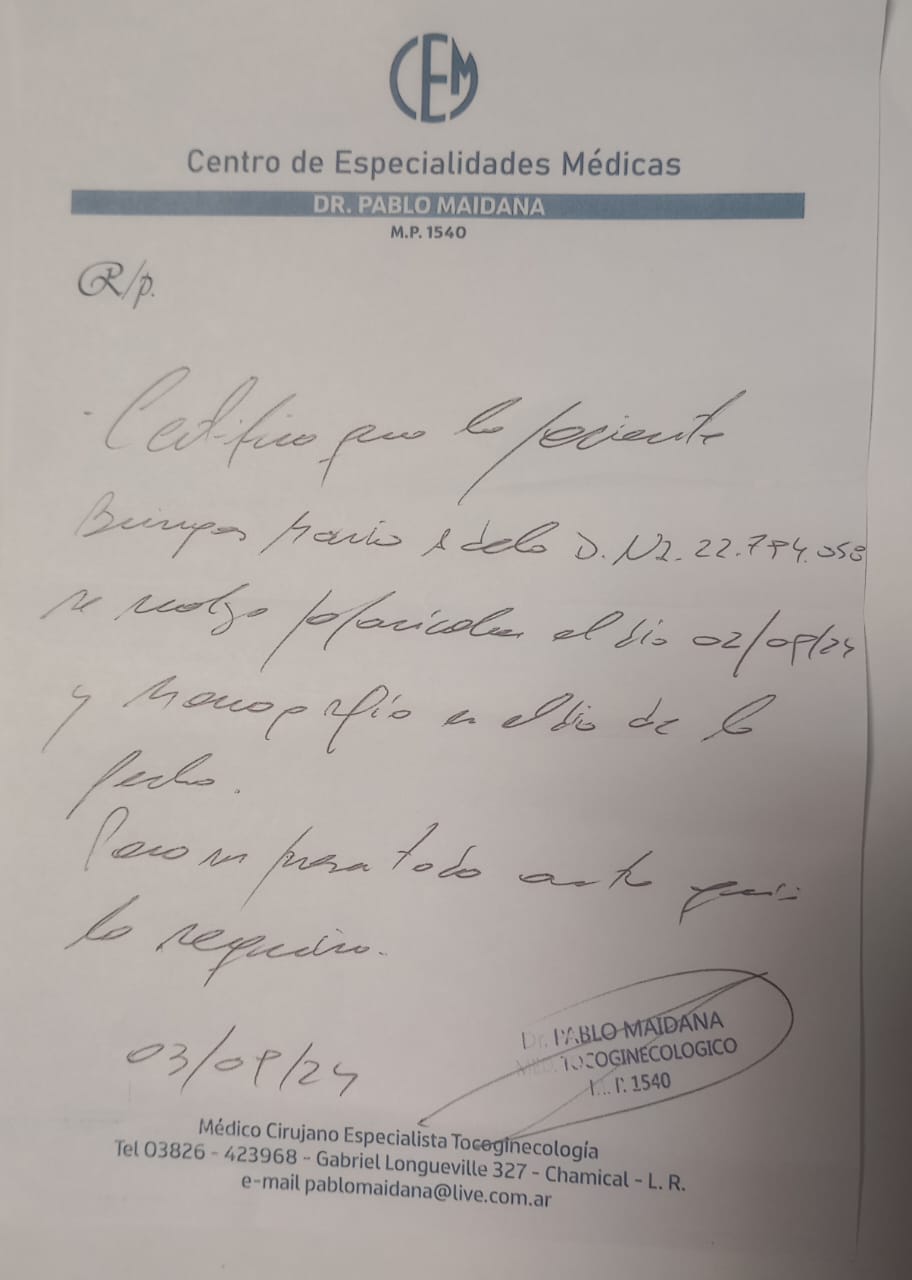 CEM
Centro de Especialidades Médicas
DR. PABLO MAIDANA
M.P. 1540
R/p.
Certifico que la paciente
Maria Adela D.NI. 22.794.058
se realizo el dia 02/09/24
y Mamografía en el dia de la
fecha.
Para ser presentado ante quien
lo requiera.
03/09/24
Dr. PABLO MAIDANA
MED. TOCOGINECOLOGICO
M.P. 1540
Médico Cirujano Especialista Tocoginecología
Tel 03826 - 423968 - Gabriel Longueville 327 - Chamical - L. R.
e-mail pablomaidana@live.com.ar